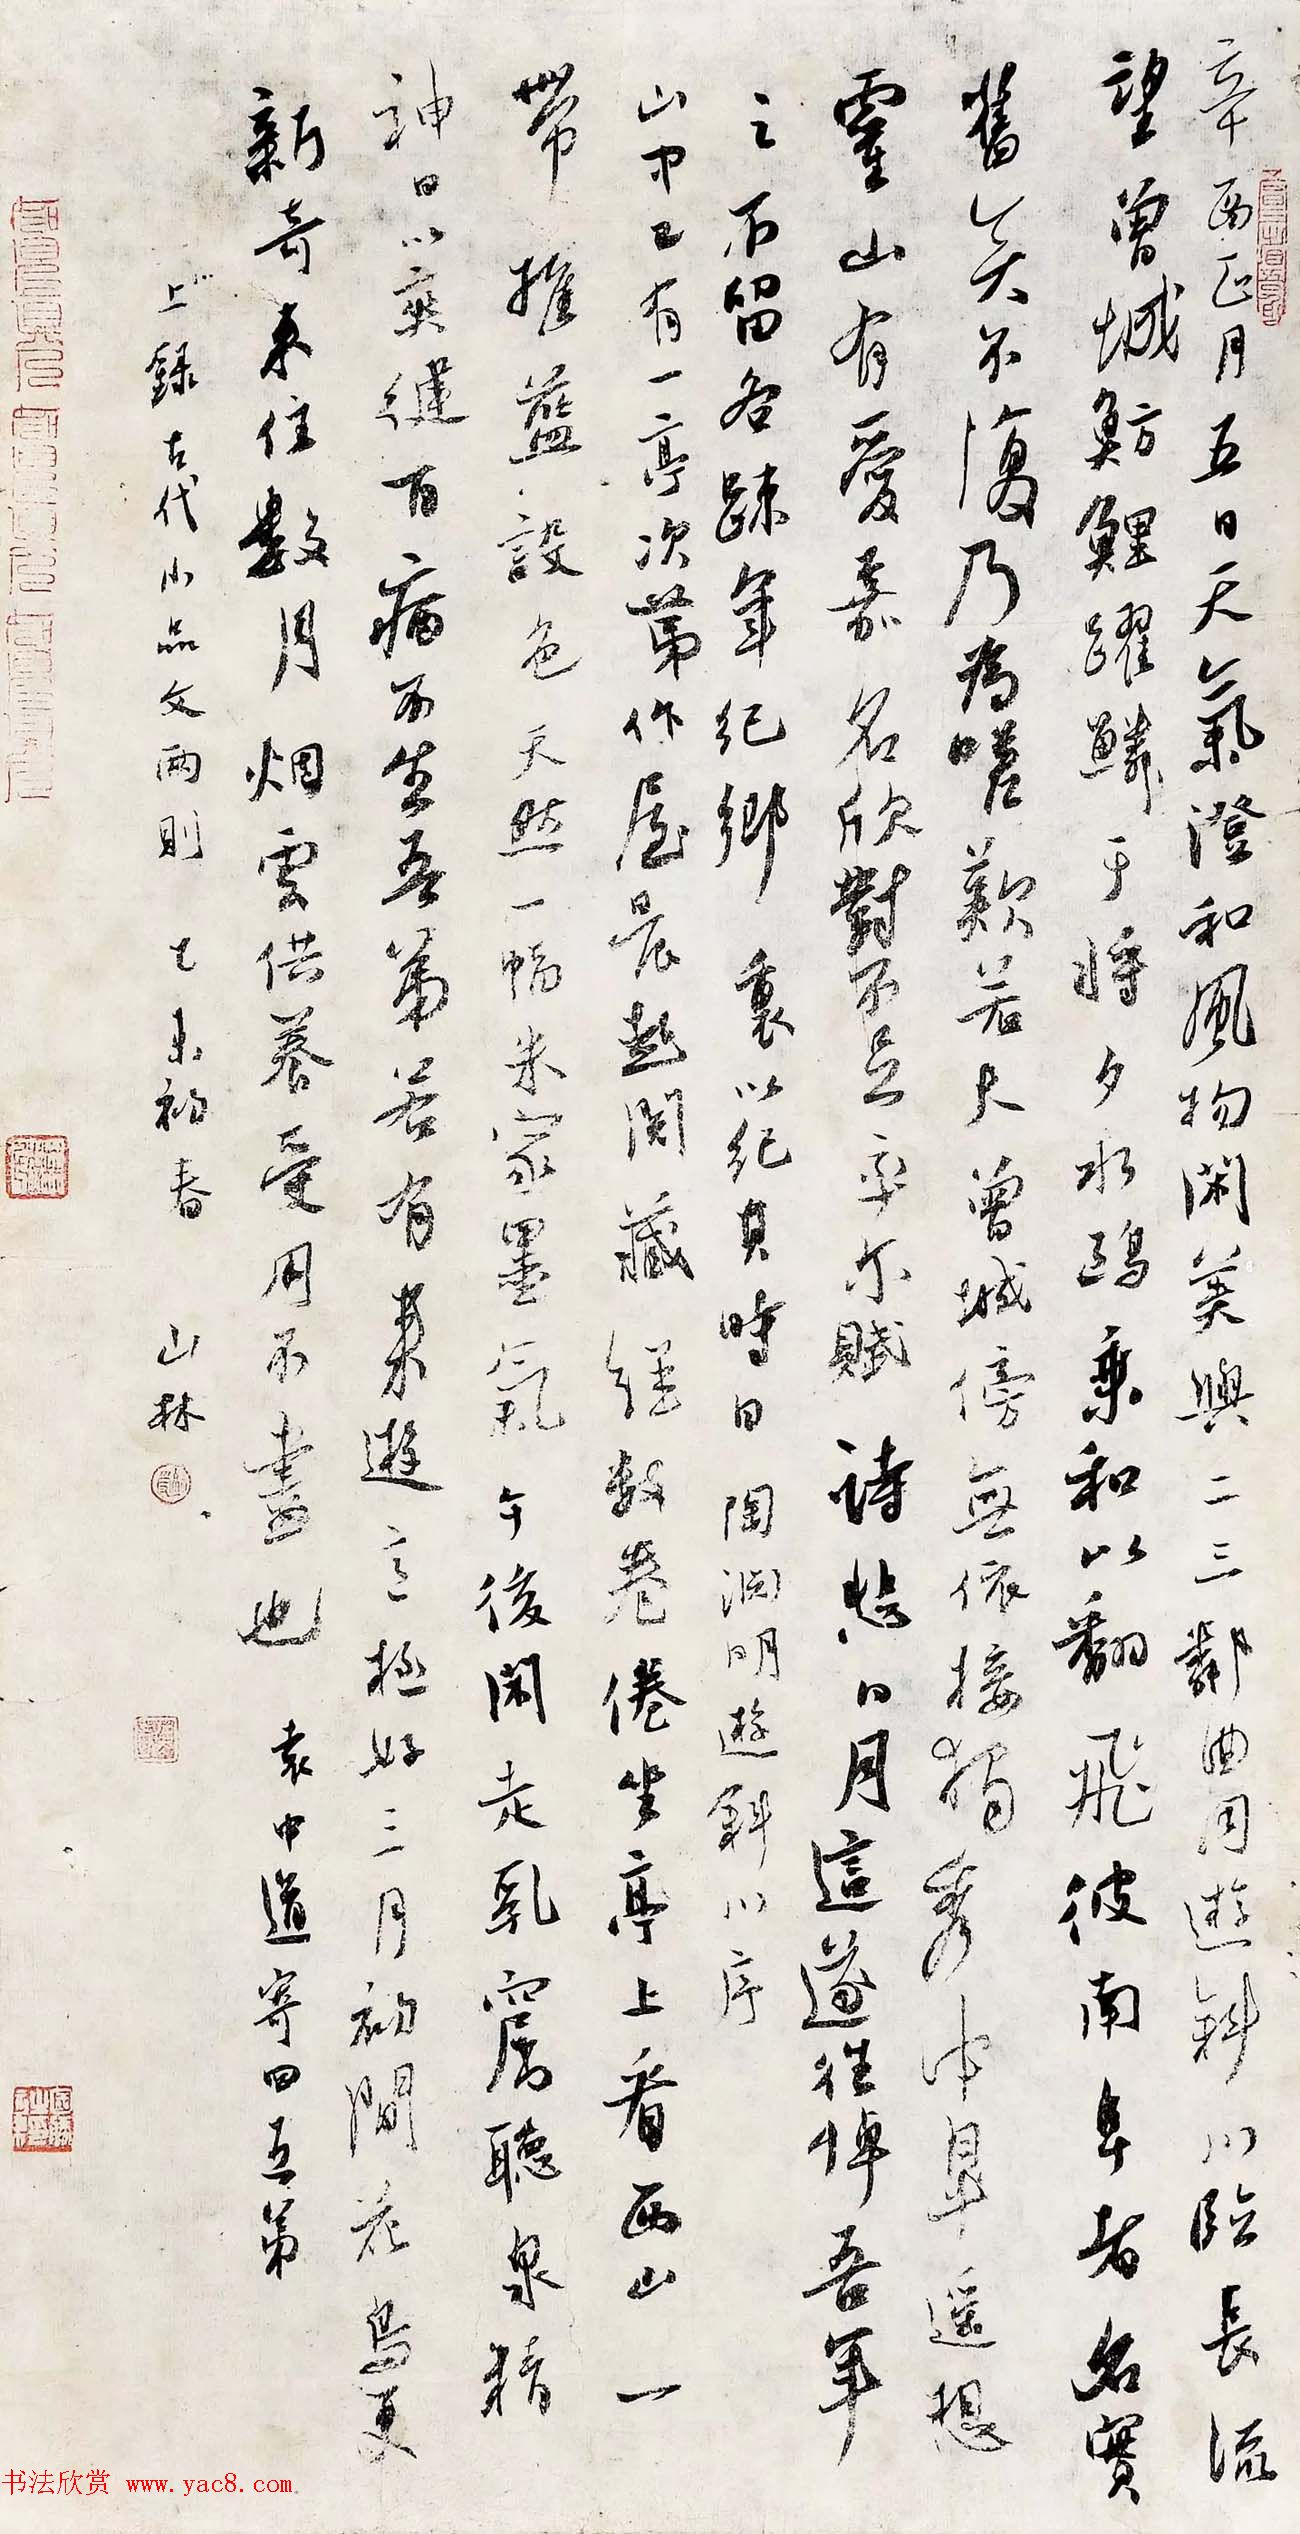 辛酉正月五日天氣澄和風物閑美與二三鄰曲同遊斜川臨長流
望曾城魴鯉躍鱗于將夕水鷗乘和以翻飛彼南阜者名實
舊矣不復乃為嗟歎若夫曾城傍無依接獨秀中皐遥想
靈山有愛嘉名欣對不足率尔賦詩悲日月這遂往悼吾年
之不留各疎年紀鄉裏以紀其時日 陶淵明遊斜川序
山中已有一亭次第作屋晨起閱藏經數卷倦坐亭上看西山一
帶推藍設色天然一幅米家墨氣午後閑走乳窟聽泉精
神日以爽健百病不生吾弟若有來遊之意極好三月初間花鳥更
新奇來住數月烟雲供養受用不盡也 袁中道寄四五弟
上錄古代小品文兩則 乙未初春 山林
书法欣赏 www.yac8.com